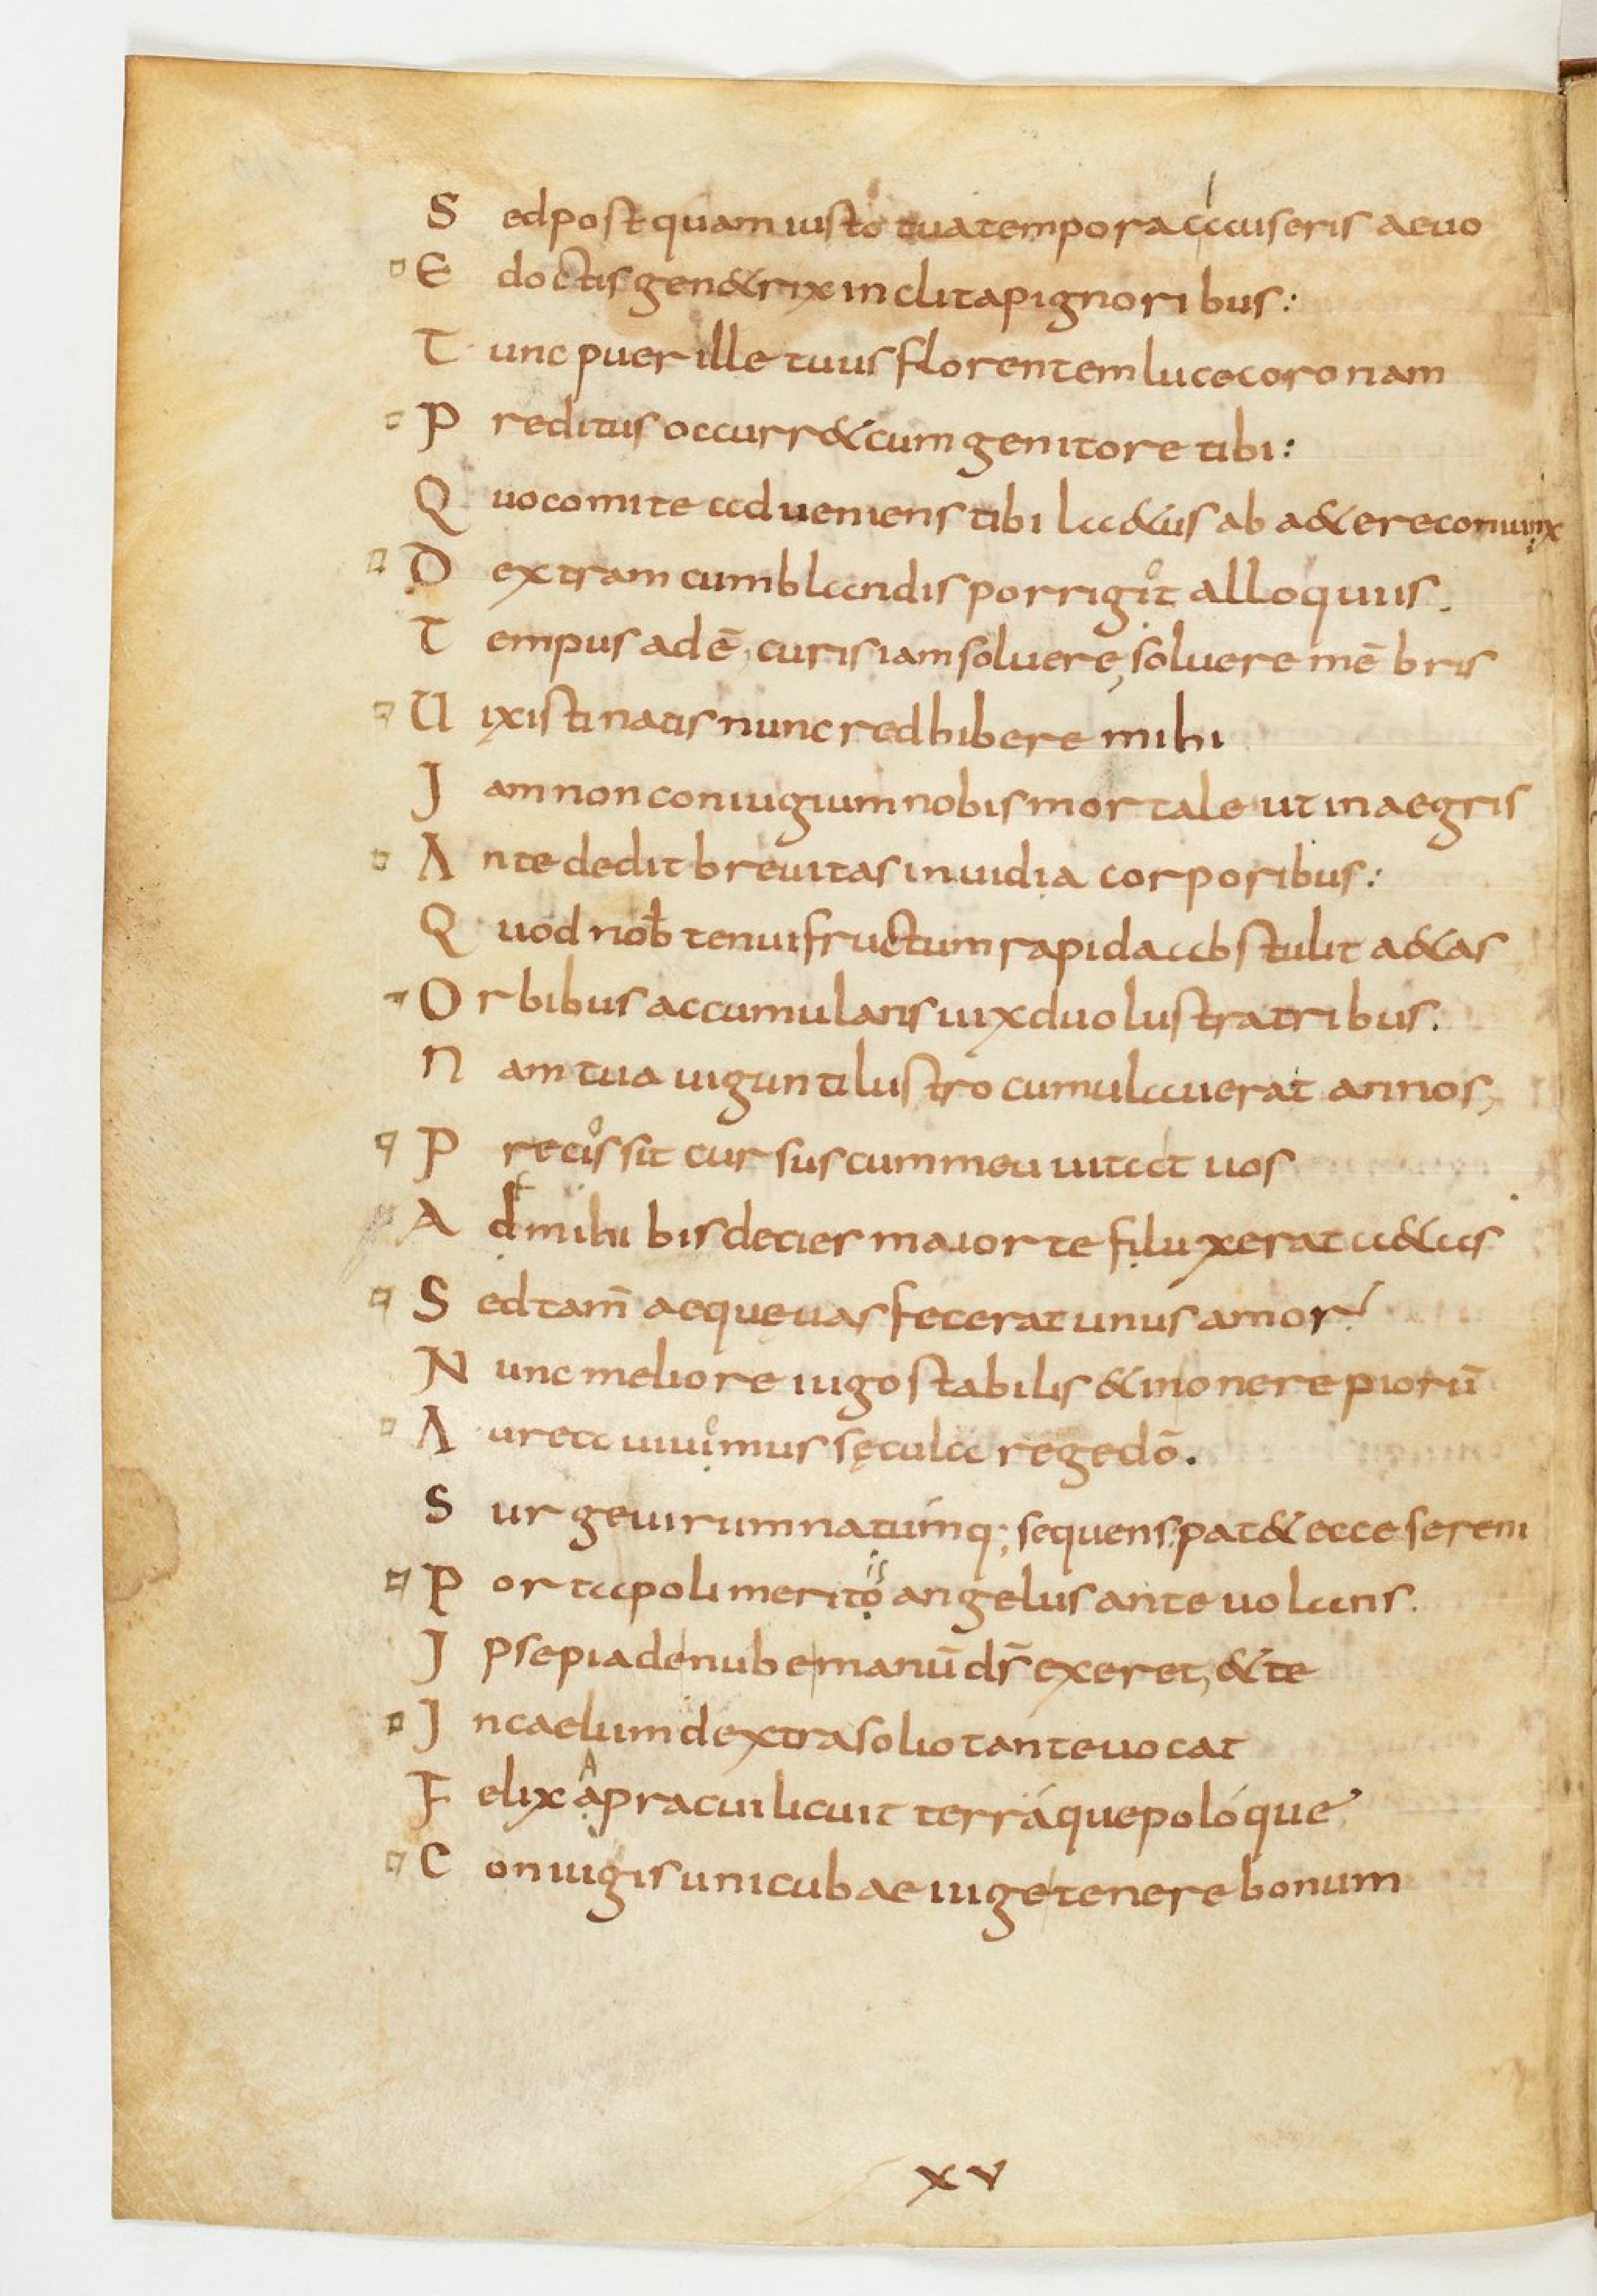 S ed post quam iusto tua tempora clauseris aeuo
E doctis gen&rix inclita pignoribus:
T unc puer ille tuus florentem luce coronam
P reditus occurr& cum genitore tibi:
Q uo comite adueniens tibi la&us ab a&ere coniunx
D extram cum blandis porrigit alloquiis.
T empus adē, curis iam soluere, soluere mēbris
U ixisti natis nunc redhibere mihi
I am non coniugium nobis mortale ut in aegris
A nte dedit breuitas inuidia corporibus:
Q uod nob tenui fructum rapida abstulit a&as
O rbibus accumulatis uix duo lustra tribus.
N am tua uigunti lustro cumulauerat annos,
P recissit cursus cum mea uita t uos
A d mihi bis decier maior te filuxerat a&as
S ed tam̄ aequęuas fecerat unus amor
N unc meliore iugo stabilis & inonere piorū
A urea uiuimus sęcula rege dō.
S urge uirum natúmq; sequens, pat& ecce sereni
P orta poli meritois angelus ante uolans.
I pse pia de nube manū dr̄ exeret, & te
I n caelum dextra solio tante uocat
F elix apra cui licuit terráque polóque
C oniugis unicubae iuge tenere bonum
XV